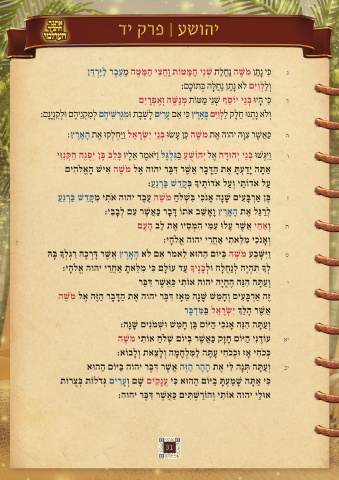 יהושע | פרק יד
ג כִּי נָתַן מֹשֶׁה נַחֲלַת שְׁנֵי הַמַּטּוֹת וַחֲצִי הַמַּטֶּה מֵעֵבֶר לַיַּרְדֵּן
וְלַלְוִיִּם לֹא נָתַן נַחֲלָה בְּתוֹכָם:
ד כִּי הָיוּ בְנֵי יוֹסֵף שְׁנֵי מַטּוֹת מְנַשֶּׁה וְאֶפְרָיִם
וְלֹא נָתְנוּ חֵלֶק לַלְוִיִּם בָּאָרֶץ כִּי אִם עָרִים לָשֶׁבֶת וּמִגְרְשֵׁיהֶם לְמִקְנֵיהֶם וּלְקִנְיָנָם:
ה כַּאֲשֶׁר צִוָּה יהוה אֶת מֹשֶׁה כֵּן עָשׂוּ בְּנֵי יִשְׂרָאֵל וַיַּחְלְקוּ אֶת הָאָרֶץ:
ו וַיִּגְּשׁוּ בְנֵי יְהוּדָה אֶל יְהוֹשֻׁעַ בַּגִּלְגָּל וַיֹּאמֶר אֵלָיו כָּלֵב בֶּן יְפֻנֶּה הַקְּנִזִּי
אַתָּה יָדַעְתָּ אֶת הַדָּבָר אֲשֶׁר דִּבֶּר יהוה אֶל מֹשֶׁה אִישׁ הָאֱלֹהִים
עַל אֹדוֹתַי וְעַל אֹדוֹתֶיךָ בְּקָדֵשׁ בַּרְנֵעַ:
ז בֶּן אַרְבָּעִים שָׁנָה אָנֹכִי בִּשְׁלֹחַ מֹשֶׁה עֶבֶד יהוה אֹתִי מִקָּדֵשׁ בַּרְנֵעַ
לְרַגֵּל אֶת הָאָרֶץ וָאָשֵׁב אֹתוֹ דָּבָר כַּאֲשֶׁר עִם לְבָבִי:
ח וְאַחַי אֲשֶׁר עָלוּ עִמִּי הִמְסִיו אֶת לֵב הָעָם
וְאָנֹכִי מִלֵּאתִי אַחֲרֵי יהוה אֱלֹהָי:
ט וַיִּשָּׁבַע מֹשֶׁה בַּיּוֹם הַהוּא לֵאמֹר אִם לֹא הָאָרֶץ אֲשֶׁר דָּרְכָה רַגְלְךָ בָּהּ
לְךָ תִהְיֶה לְנַחֲלָה וּלְבָנֶיךָ עַד עוֹלָם כִּי מִלֵּאתָ אַחֲרֵי יהוה אֱלֹהָי:
י וְעַתָּה הִנֵּה הֶחֱיָה יהוה אוֹתִי כַּאֲשֶׁר דִּבֵּר
זֶה אַרְבָּעִים וְחָמֵשׁ שָׁנָה מֵאָז דִּבֶּר יהוה אֶת הַדָּבָר הַזֶּה אֶל מֹשֶׁה
אֲשֶׁר הָלַךְ יִשְׂרָאֵל בַּמִּדְבָּר
וְעַתָּה הִנֵּה אָנֹכִי הַיּוֹם בֶּן חָמֵשׁ וּשְׁמֹנִים שָׁנָה:
יא עוֹדֶנִּי הַיּוֹם חָזָק כַּאֲשֶׁר בְּיוֹם שְׁלֹחַ אוֹתִי מֹשֶׁה
כְּכֹחִי אָז וּכְכֹחִי עָתָּה לַמִּלְחָמָה וְלָצֵאת וְלָבוֹא:
יב וְעַתָּה תְּנָה לִּי אֶת הָהָר הַזֶּה אֲשֶׁר דִּבֶּר יהוה בַּיּוֹם הַהוּא
כִּי אַתָּה שָׁמַעְתָּ בַיּוֹם הַהוּא כִּי עֲנָקִים שָׁם וְעָרִים גְּדֹלוֹת בְּצֻרוֹת
אוּלַי יהוה אוֹתִי וְהוֹרַשְׁתִּים כַּאֲשֶׁר דִּבֶּר יהוה:
31